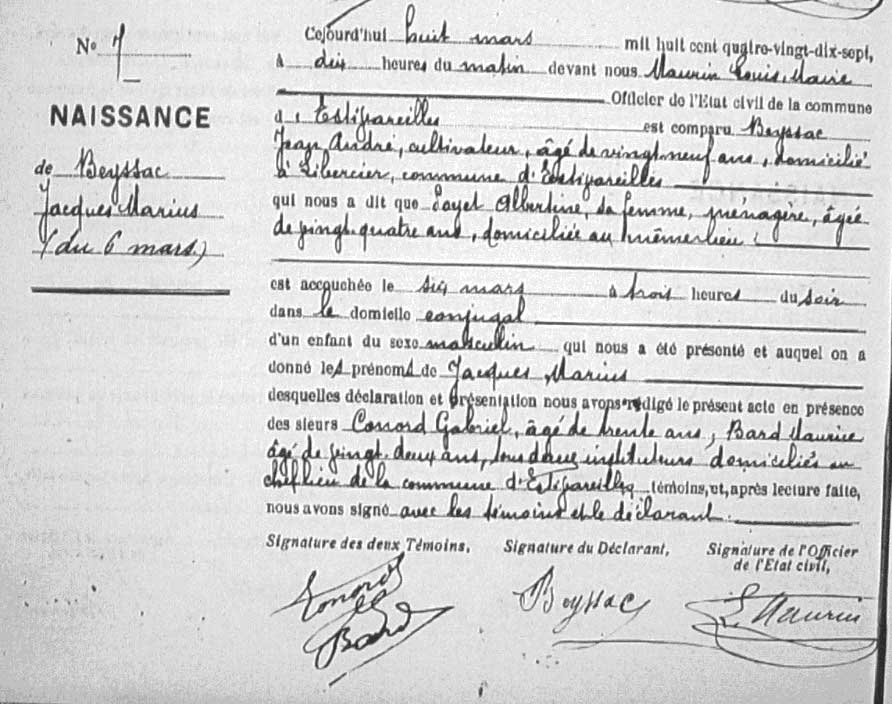 No 7
NAISSANCE
de Beyssac
Jacques Marius
(du 6 mars)
Cejourd'hui huit mars mil huit cent quatre-vingt-dix-sept,
à dix heures du matin devant nous Maurin Louis Marie
Officier de l'Etat civil de la commune
d'Estivareilles est comparu Beyssac
Jean André, cultivateur, âgé de vingt neuf ans, domicilié
à Libercier, commune d'Estivareilles
qui nous a dit que Payet Albertine, sa femme, ménagère, âgée
de vingt-quatre ans, domiciliée au même lieu :
est accouchée le six mars à trois heures du soir
dans le domicile conjugal
d'un enfant du sexe masculin qui nous a été présenté et auquel on a
donné les prénoms de Jacques Marius
desquelles déclaration et présentation nous avons rédigé le présent acte en présence
des sieurs Conord Gabriel, âgé de trente ans, Bard Maurice
âgé de vingt-deux ans, tous deux instituteurs domiciliés au
chef lieu de la commune d'Estivareilles témoins, et, après lecture faite,
nous avons signé avec les témoins et le déclarant.
Signature des deux Témoins, Signature du Déclarant, Signature de l'Officier
de l'Etat civil,
Conord Beyssac L. Maurin
Bard